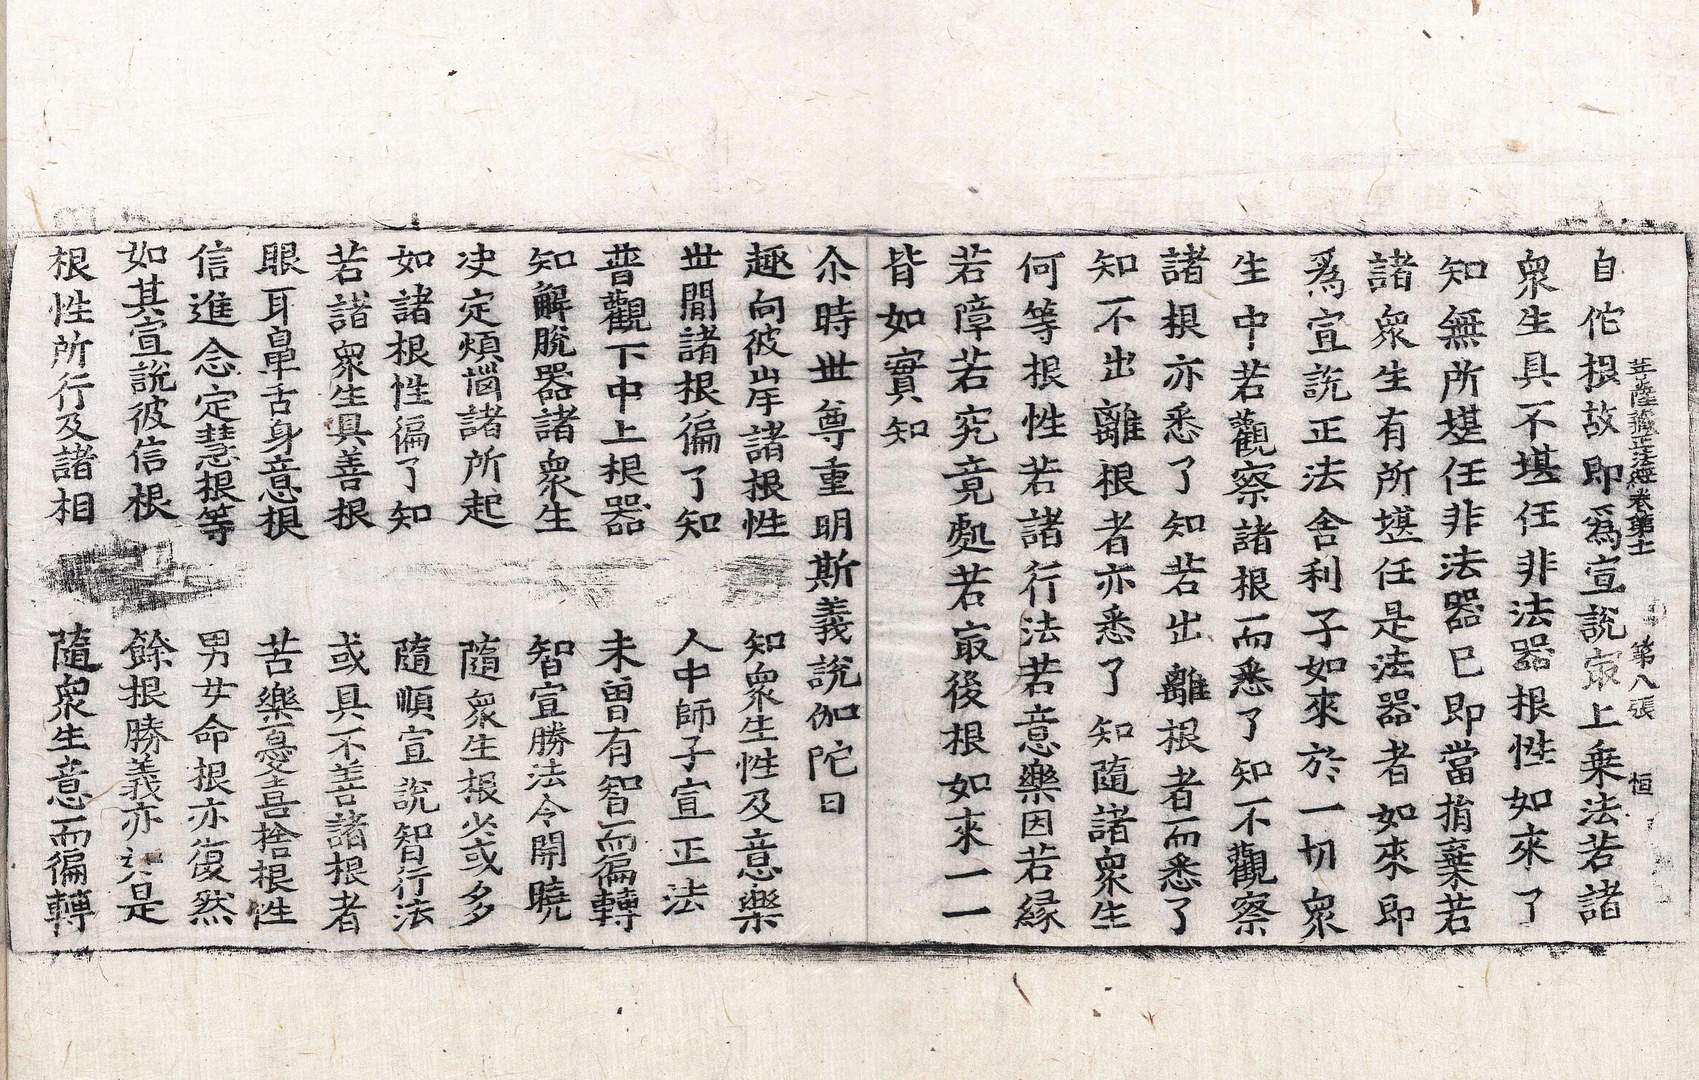 菩薩藏正法經卷第十 第八張 恒
自佗根故即爲宣說㝡上乗法若諸
衆生具不堪任非法器根性如來了
知無所堪任非法器已即當捎棄若
諸衆生有所堪任是法器者如來即
爲宣說正法舍利子如來於一切衆
生中若觀察諸根而悉了知不觀察
諸根亦悉了知若出離根者而悉了
知不出離根者亦悉了知隨諸衆生
何等根性若諸行法若意樂因若緣
若障若究竟處若㝡後根如來一一
皆如實知
尒時世尊重明斯義說伽陀曰
趣向彼岸諸根性 知衆生性及意樂
世間諸根徧了知 人中師子宣正法
普觀下中上根器 未曾有智而徧轉
知解脫器諸衆生 智宣勝法令開曉
決定煩惱諸所起 隨衆生根少或多
如諸根性徧了知 隨順宣說智行法
若諸衆生具善根 或具不善諸根者
眼耳鼻舌身意根 苦樂憂喜捨根性
信進念定慧根等 男女命根亦復然
如其宣說彼信根 餘根勝義亦如是
根性所行及諸相 隨衆生意而徧轉